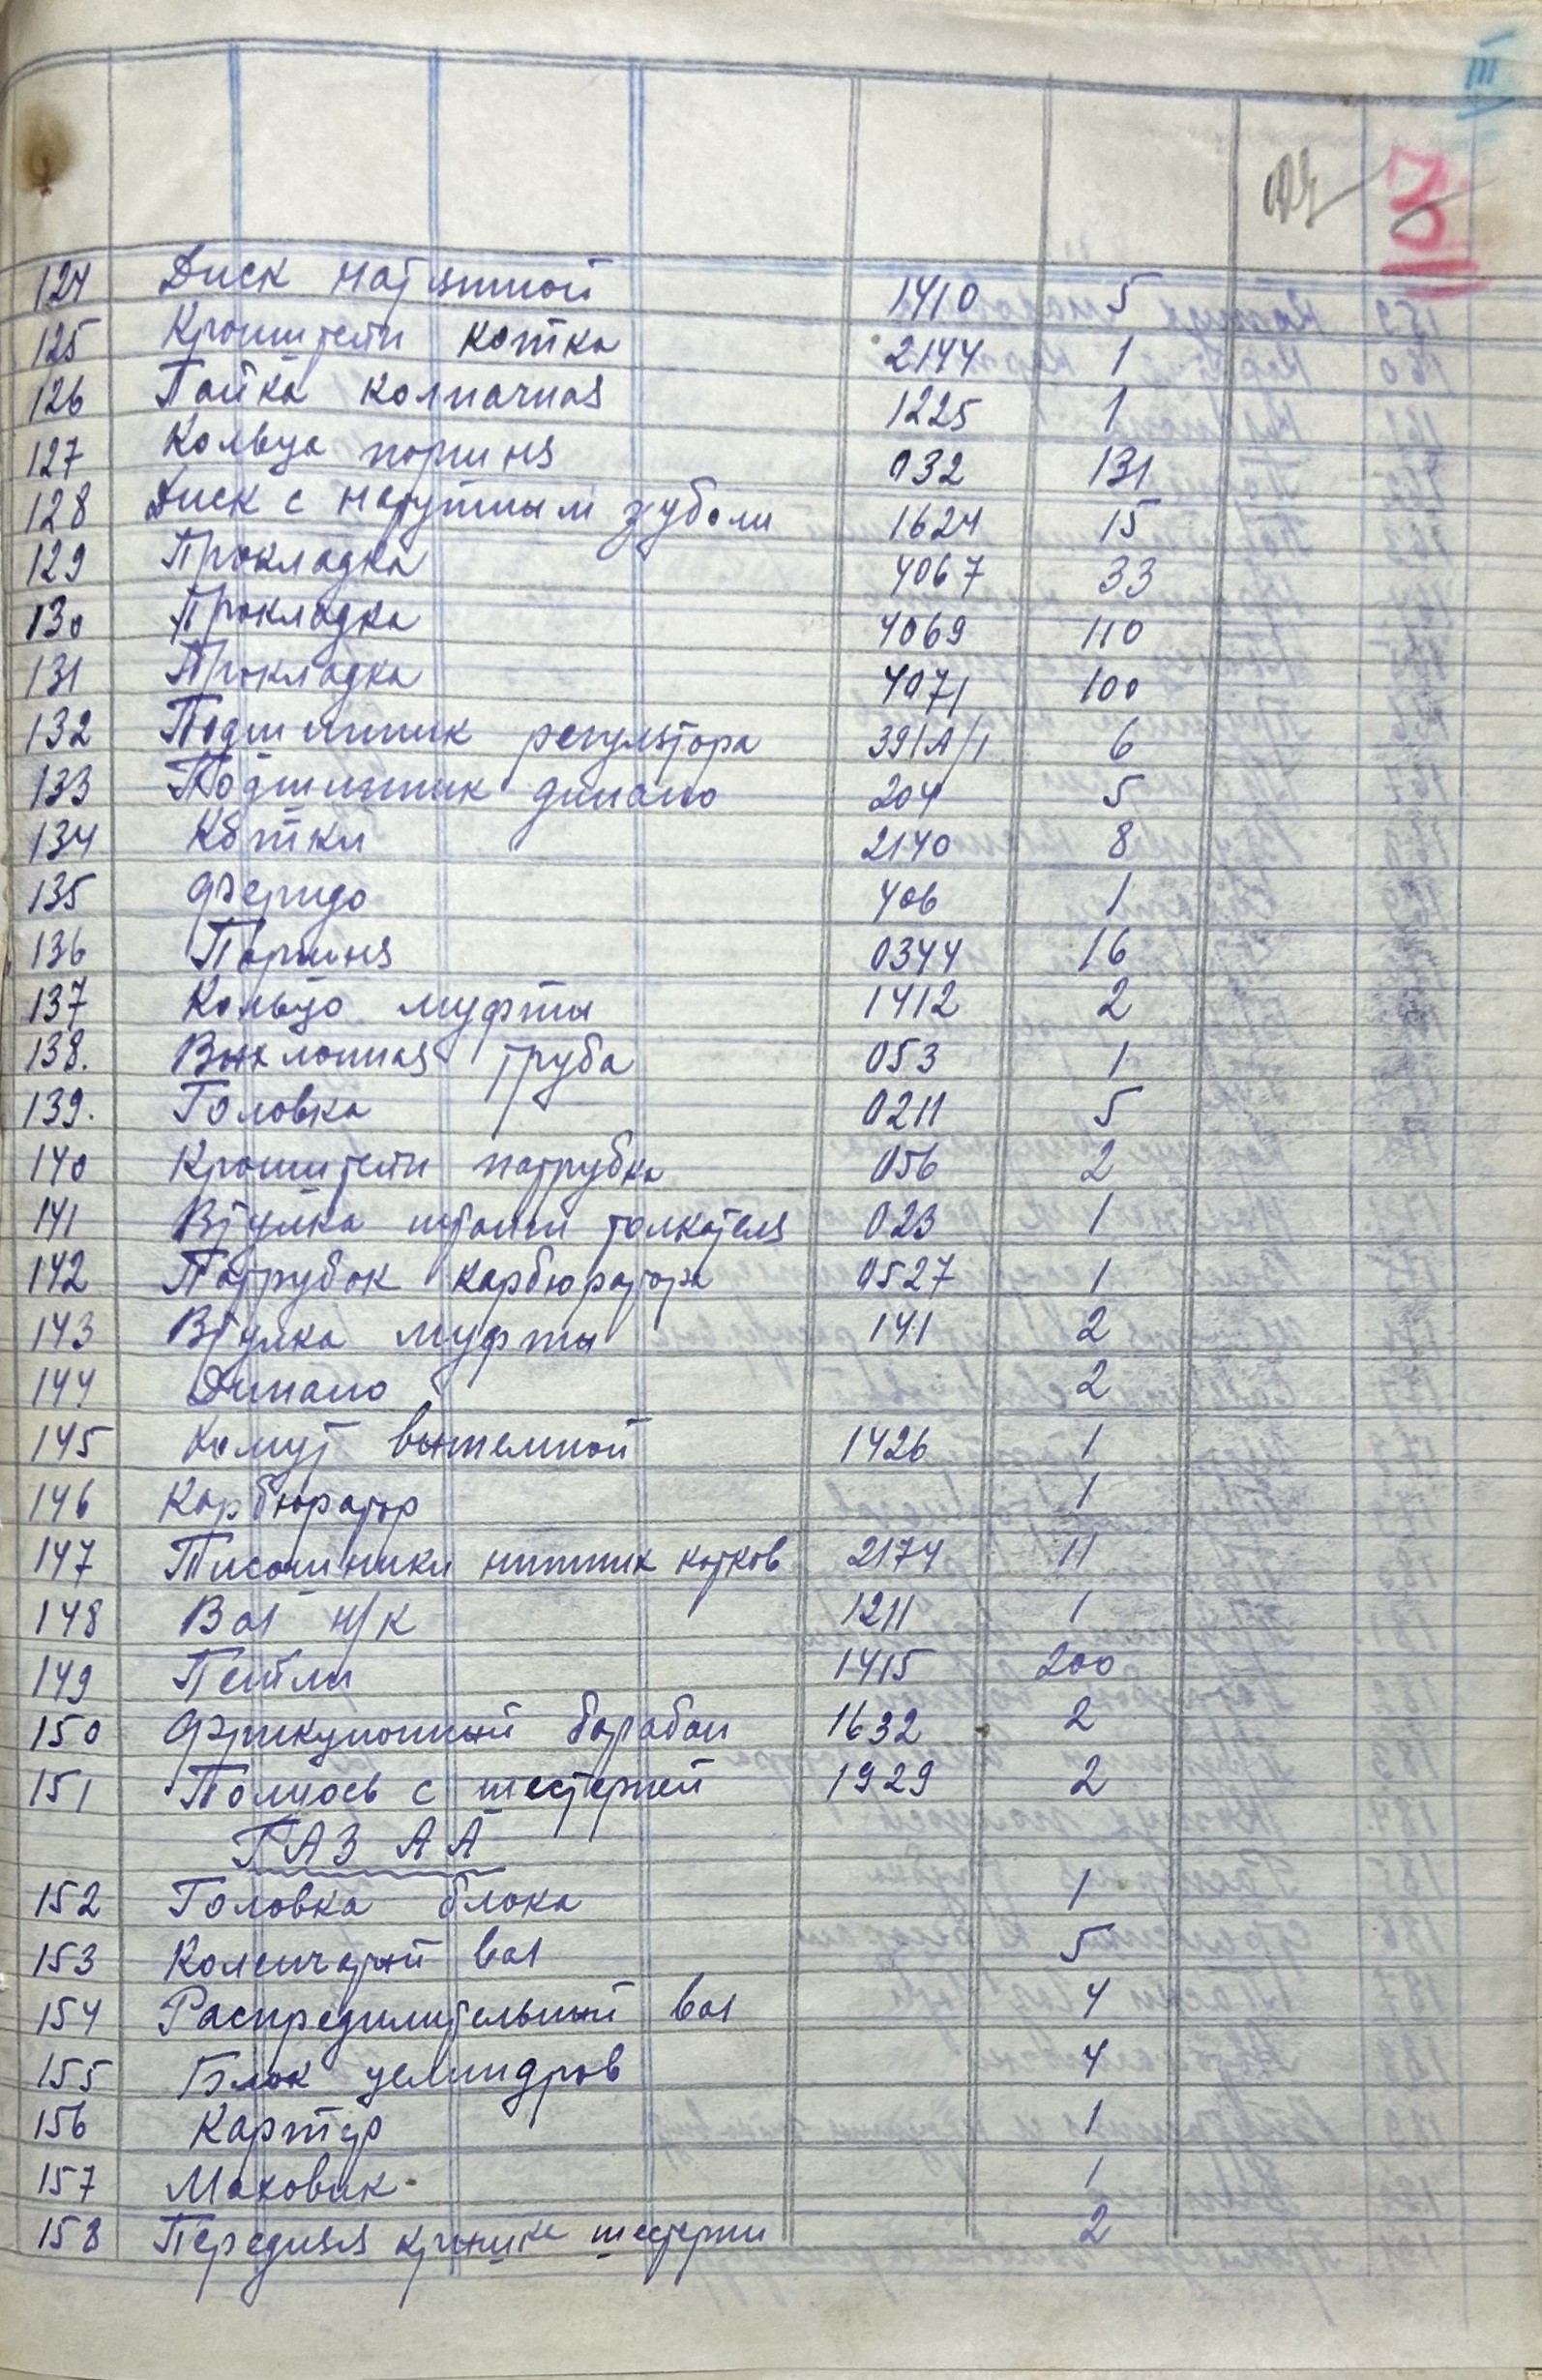 III
124 Диск натяжной 1410 5
125 Кронштейн катка 2144 1
126 Гайка колпачная 1225 1
127 Кольца поршня 032 131
128 Диск с наружным зубом 1624 15
129 Прокладка 4067 33
130 Прокладка 4069 110
131 Прокладка 4071 100
132 Подшипник регулятора 391А/1 6
133 Подшипник динамо 204 5
134 Катки 2140 8
135 Феридо 406 1
136 Поршня 0344 16
137 Кольцо муфты 1412 2
138. Выхлопная труба 053 1
139. Головка 0211 5
140 Кронштейн патрубка 056 2
141 Втулка штанги толкателя 023 1
142 Патрубок карбюратора 0527 1
143 Втулка муфты 141 2
144 Динамо 2
145 Хомут выжемной 1426 1
146 Карбюратор 1
147 нижних катков 2174 11
148 Вал н/к 1211 1
149 Петли 1415 200
150 Фрикционный барабан 1632 2
151 Полуось с шестерней 1929 2
ГАЗ АА
152 Головка блока 1
153 Коленчатый вал 5
154 Распределительный вал 4
155 Блок целиндров 4
156 Картер 1
157 Маховик 1
158 Передняя крышка шестерни 2